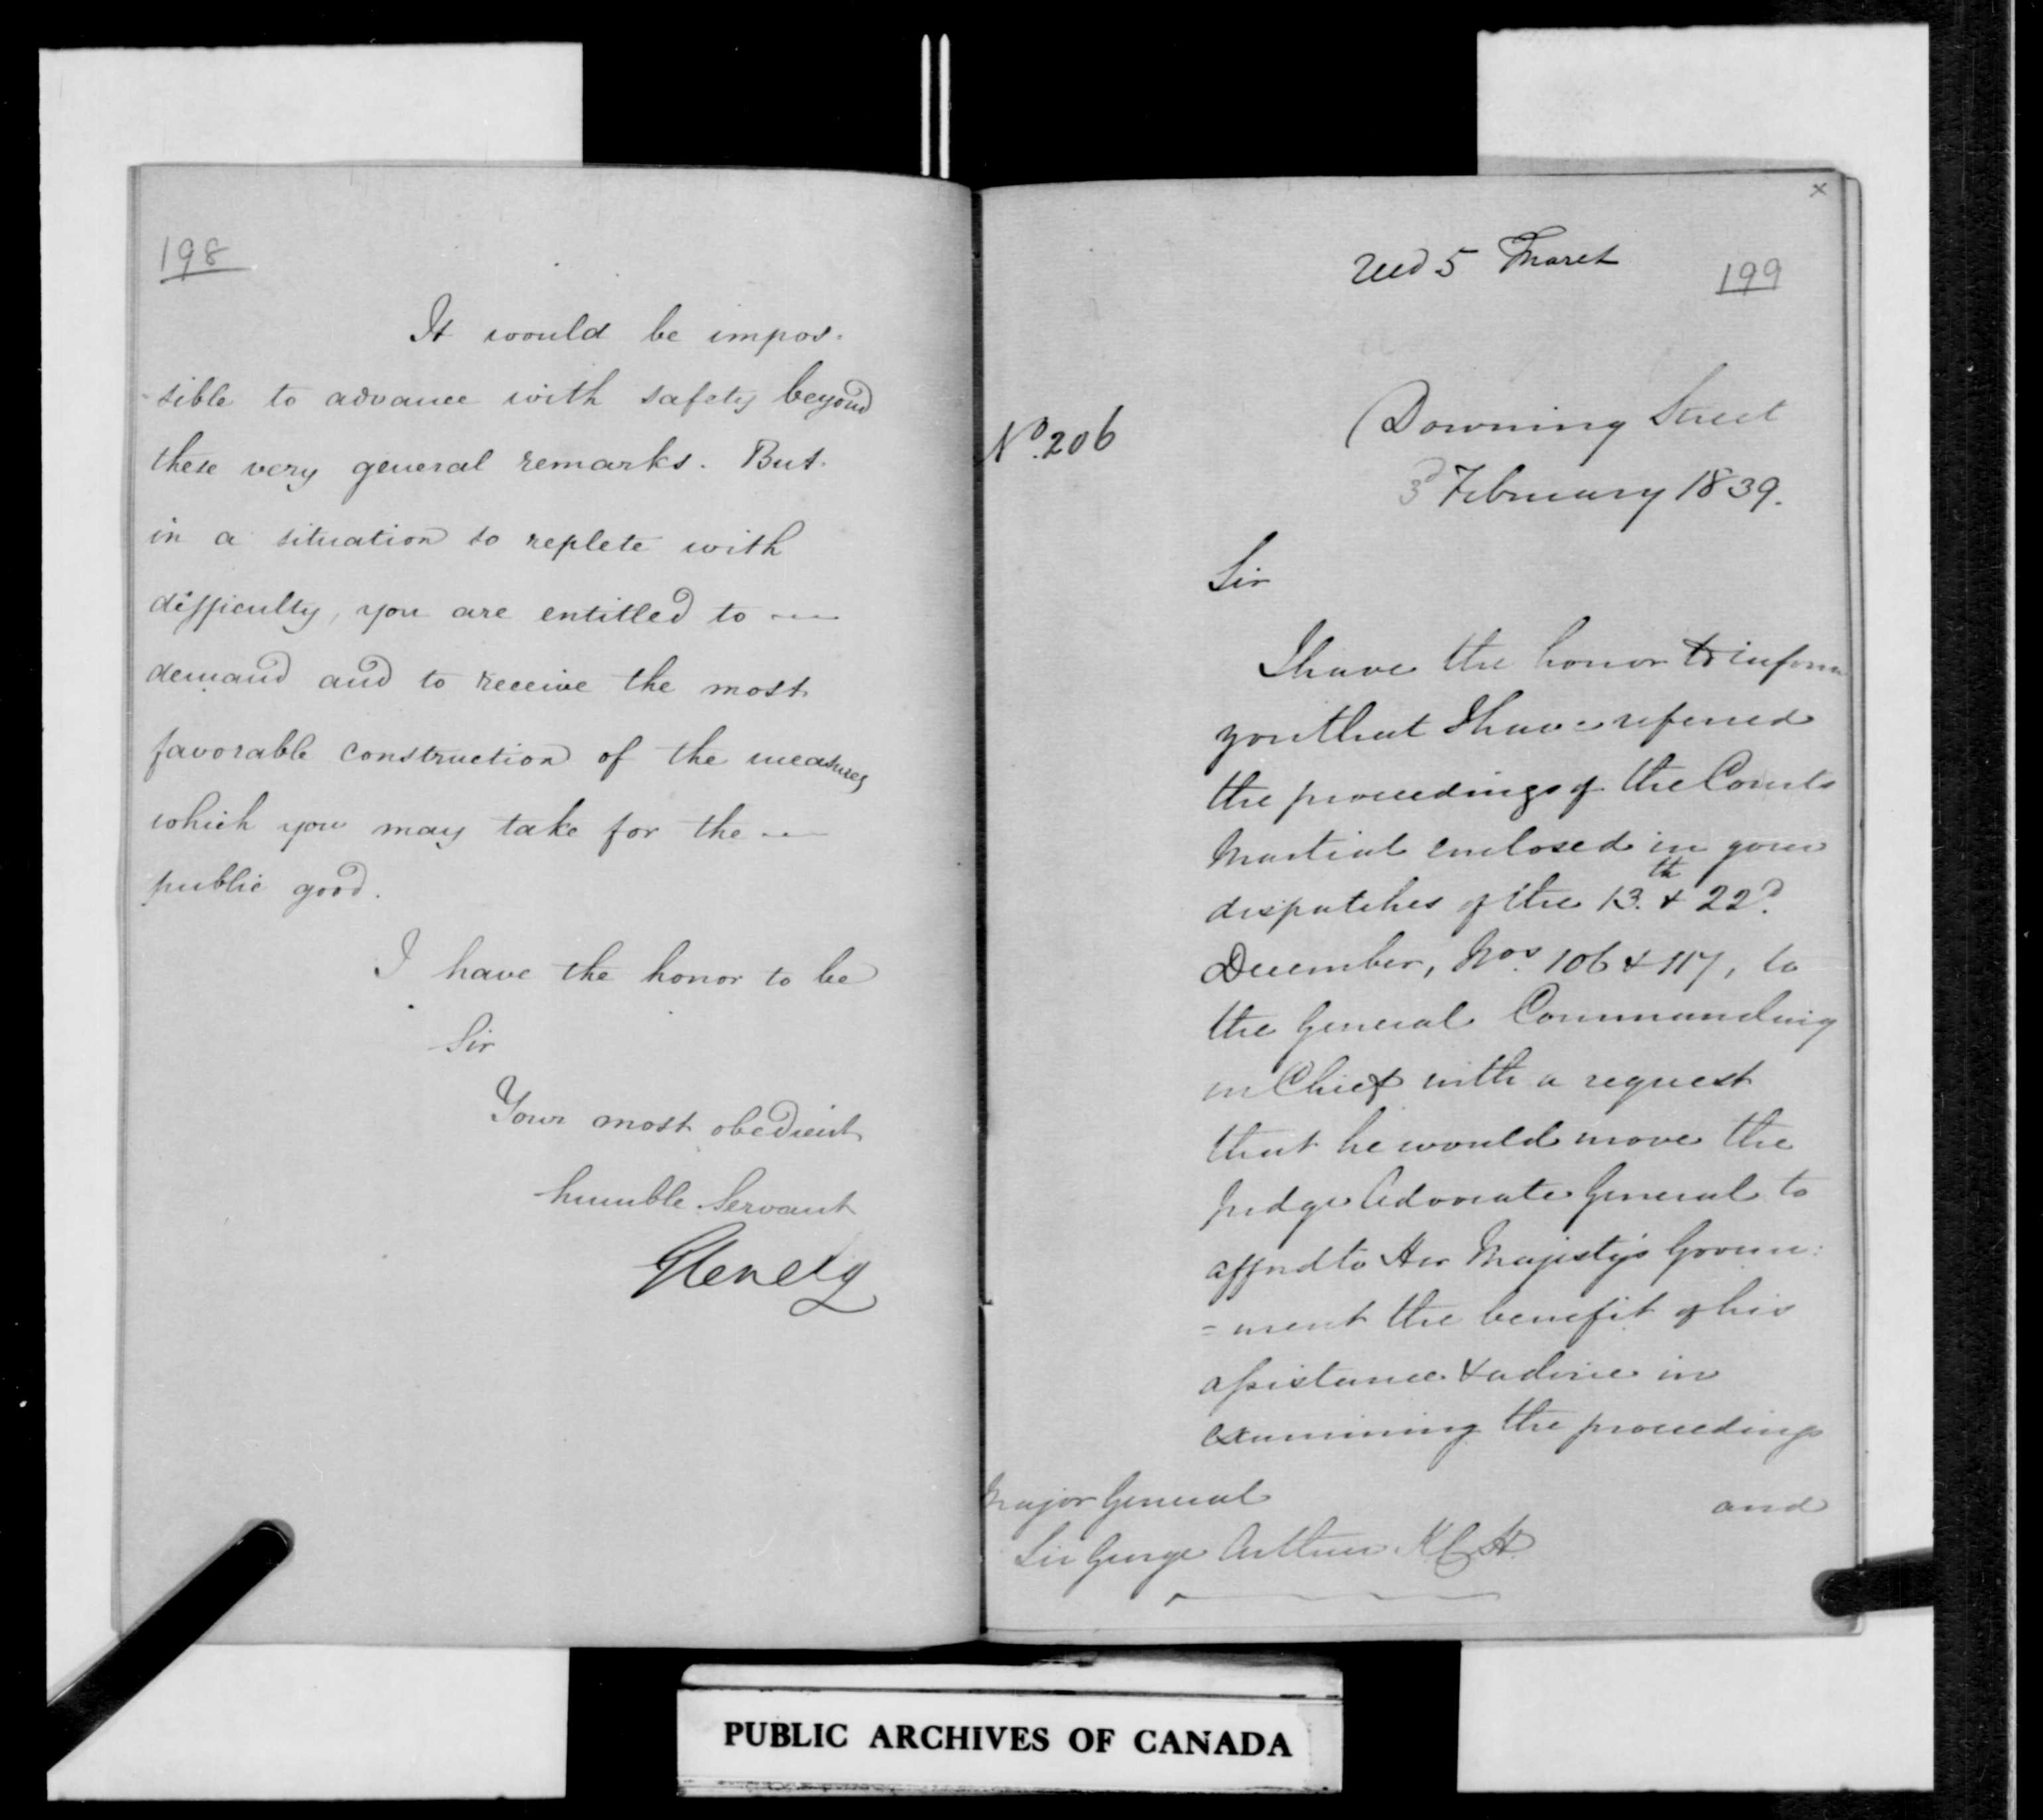 198
It would be impos-
-sible to advance with safety beyond
these very general remarks. But
in a situation so replete with
difficulty, you are entitled to
demand and to receive the most
favorable construction of the measures
which you may take for the
public good.
I have the honor to be
Sir
Your most obedient
humble Servant
Glenelg
x
Recd 5 March
199
No. 206
Downing Street
3d February 1839.
Sir
I have the honor to inform
you that I have referred
the proceedings of the Courts
Martial enclosed in your
dispatches of the 13th & 22d
December, Nos. 106 & 117, to
the General Commanding
in Chief with a request
that he would move the
Judge Advocate General to
afford to Her Majesty's Govern:
=ment the benefit of his
assistance & advice in
examining the proceedings
and
Major General
Sir George Arthur K.C.H.
PUBLIC ARCHIVES OF CANADA